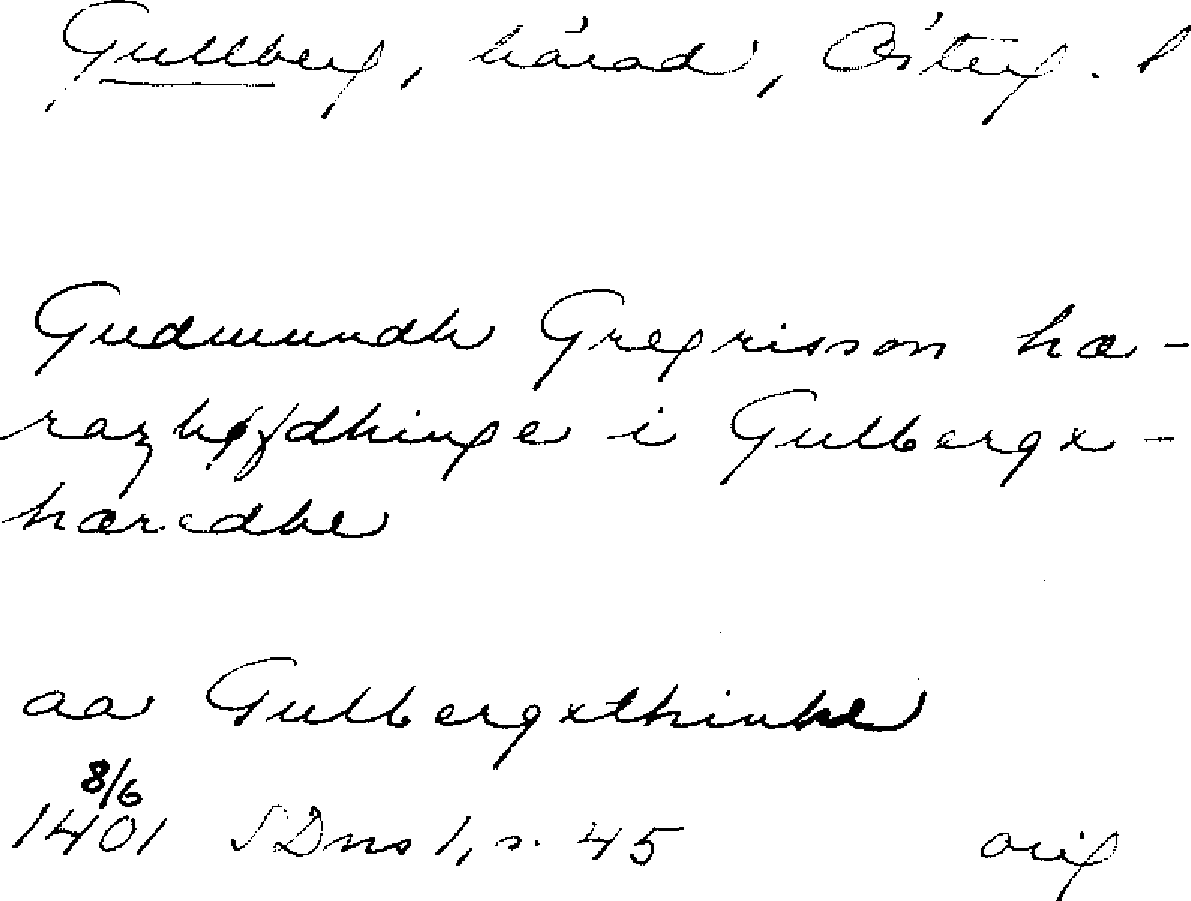 Gullberg, härad, Österg. l
Gudmundh Gregrisson hæ-
razhøfdhinge i Gulbergx-
hæredhe
aa Gulbergxthinke
8/6
1401 SDns 1, s. 45 orig